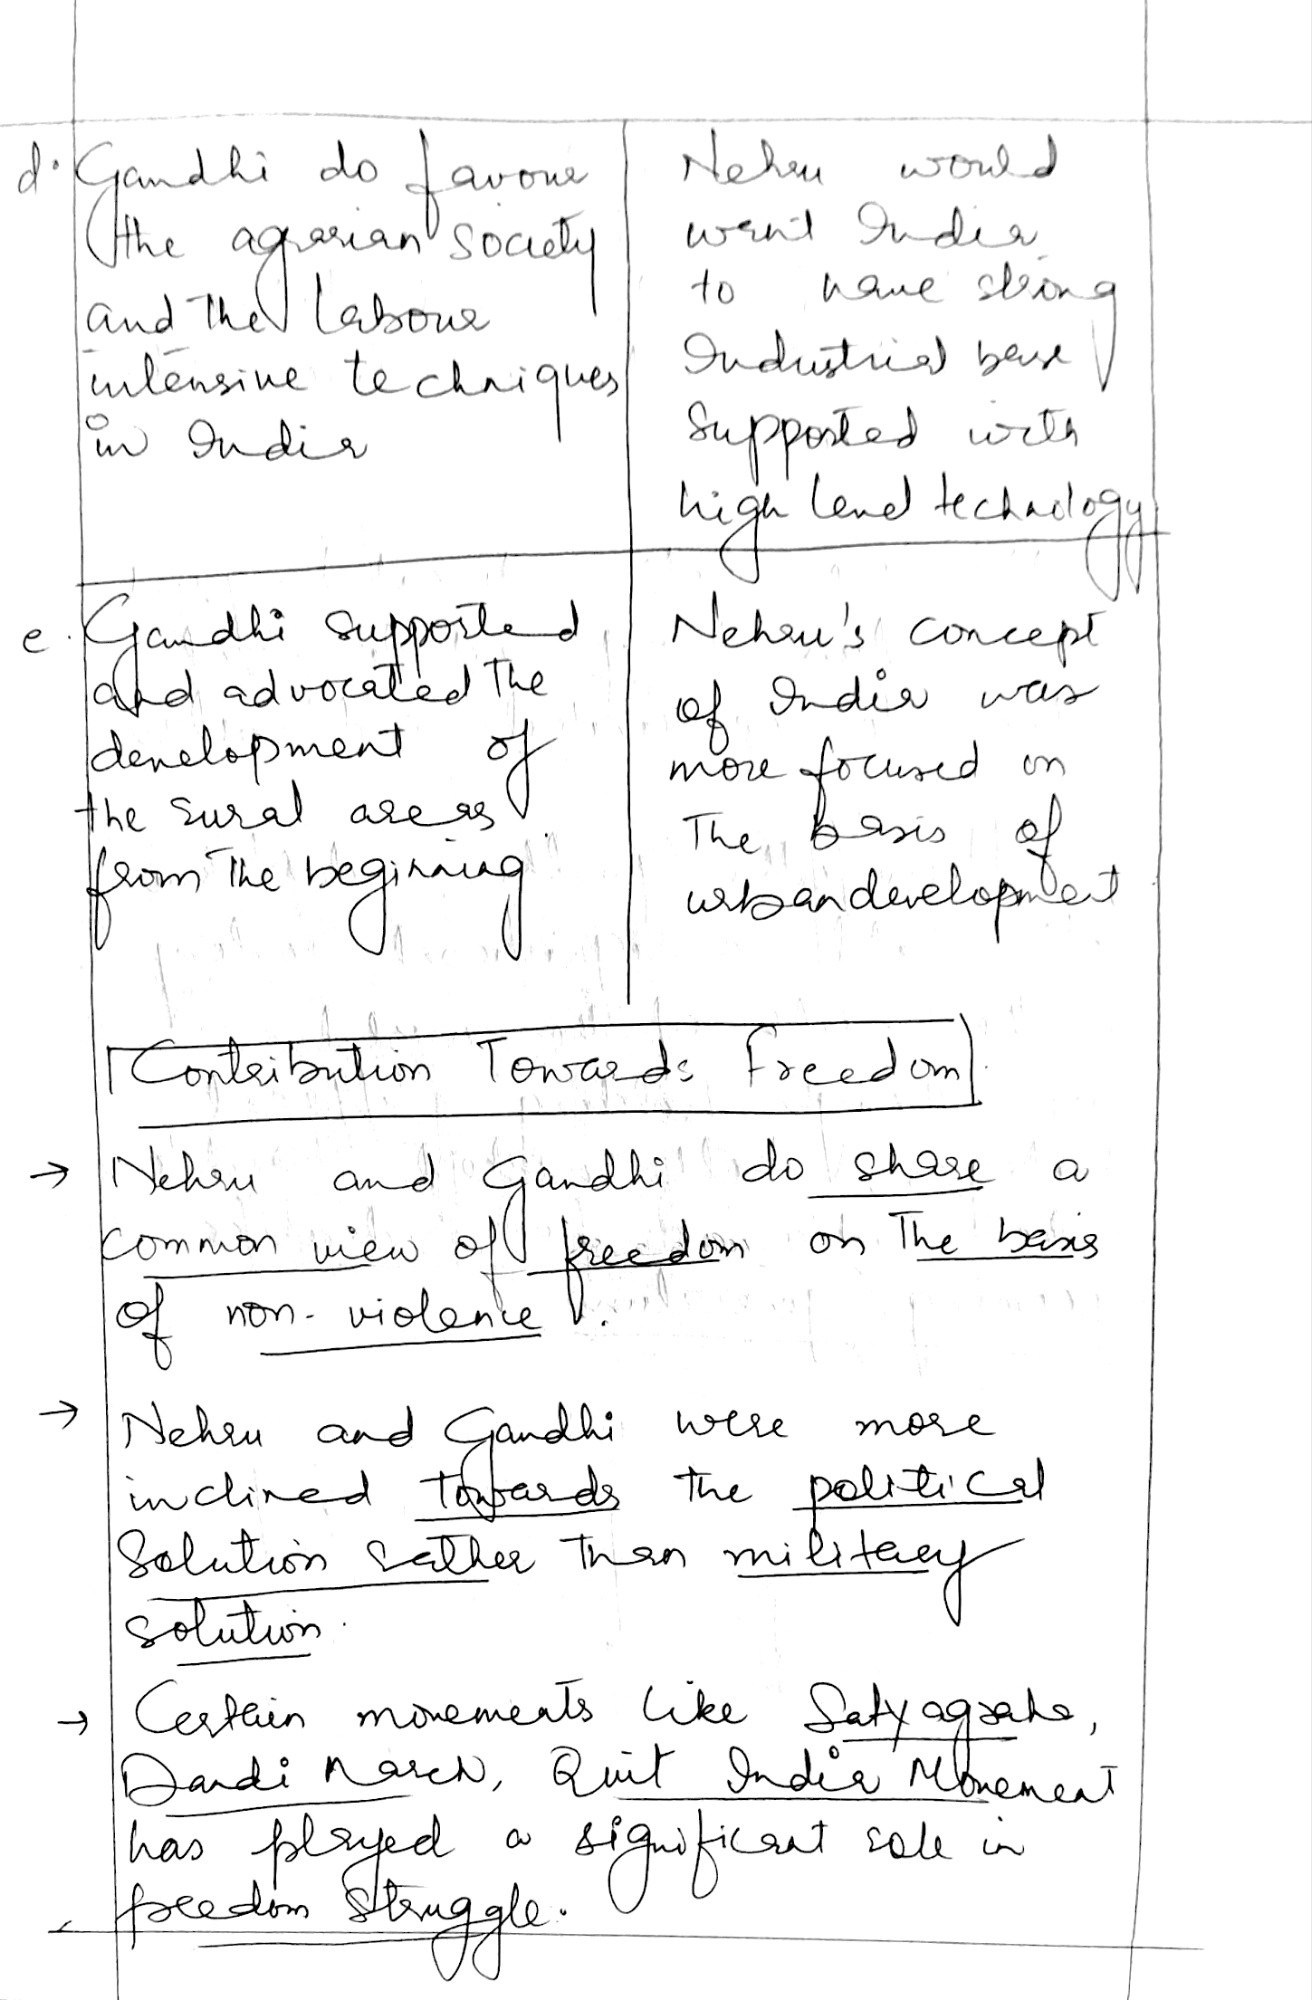 d. Gandhi do favour
the agrarian society
and the labour
intensive techniques
in India
Nehru would
want India
to have strong
Industrial base
Supported with
high level technology
e. Gandhi supported
and advocated the
development of
the rural areas
from the beginning
Nehru's concept
of India was
more focused on
The basis of
urban development
Contribution Towards Freedom
→ Nehru and Gandhi do share a
common view of freedom on The basis
of non-violence.
→ Nehru and Gandhi were more
inclined towards the political
Solution rather than military
solution.
→ Certain movements like Satyagraha,
Dandi March, Quit India Movement
has played a significant role in
freedom struggle.